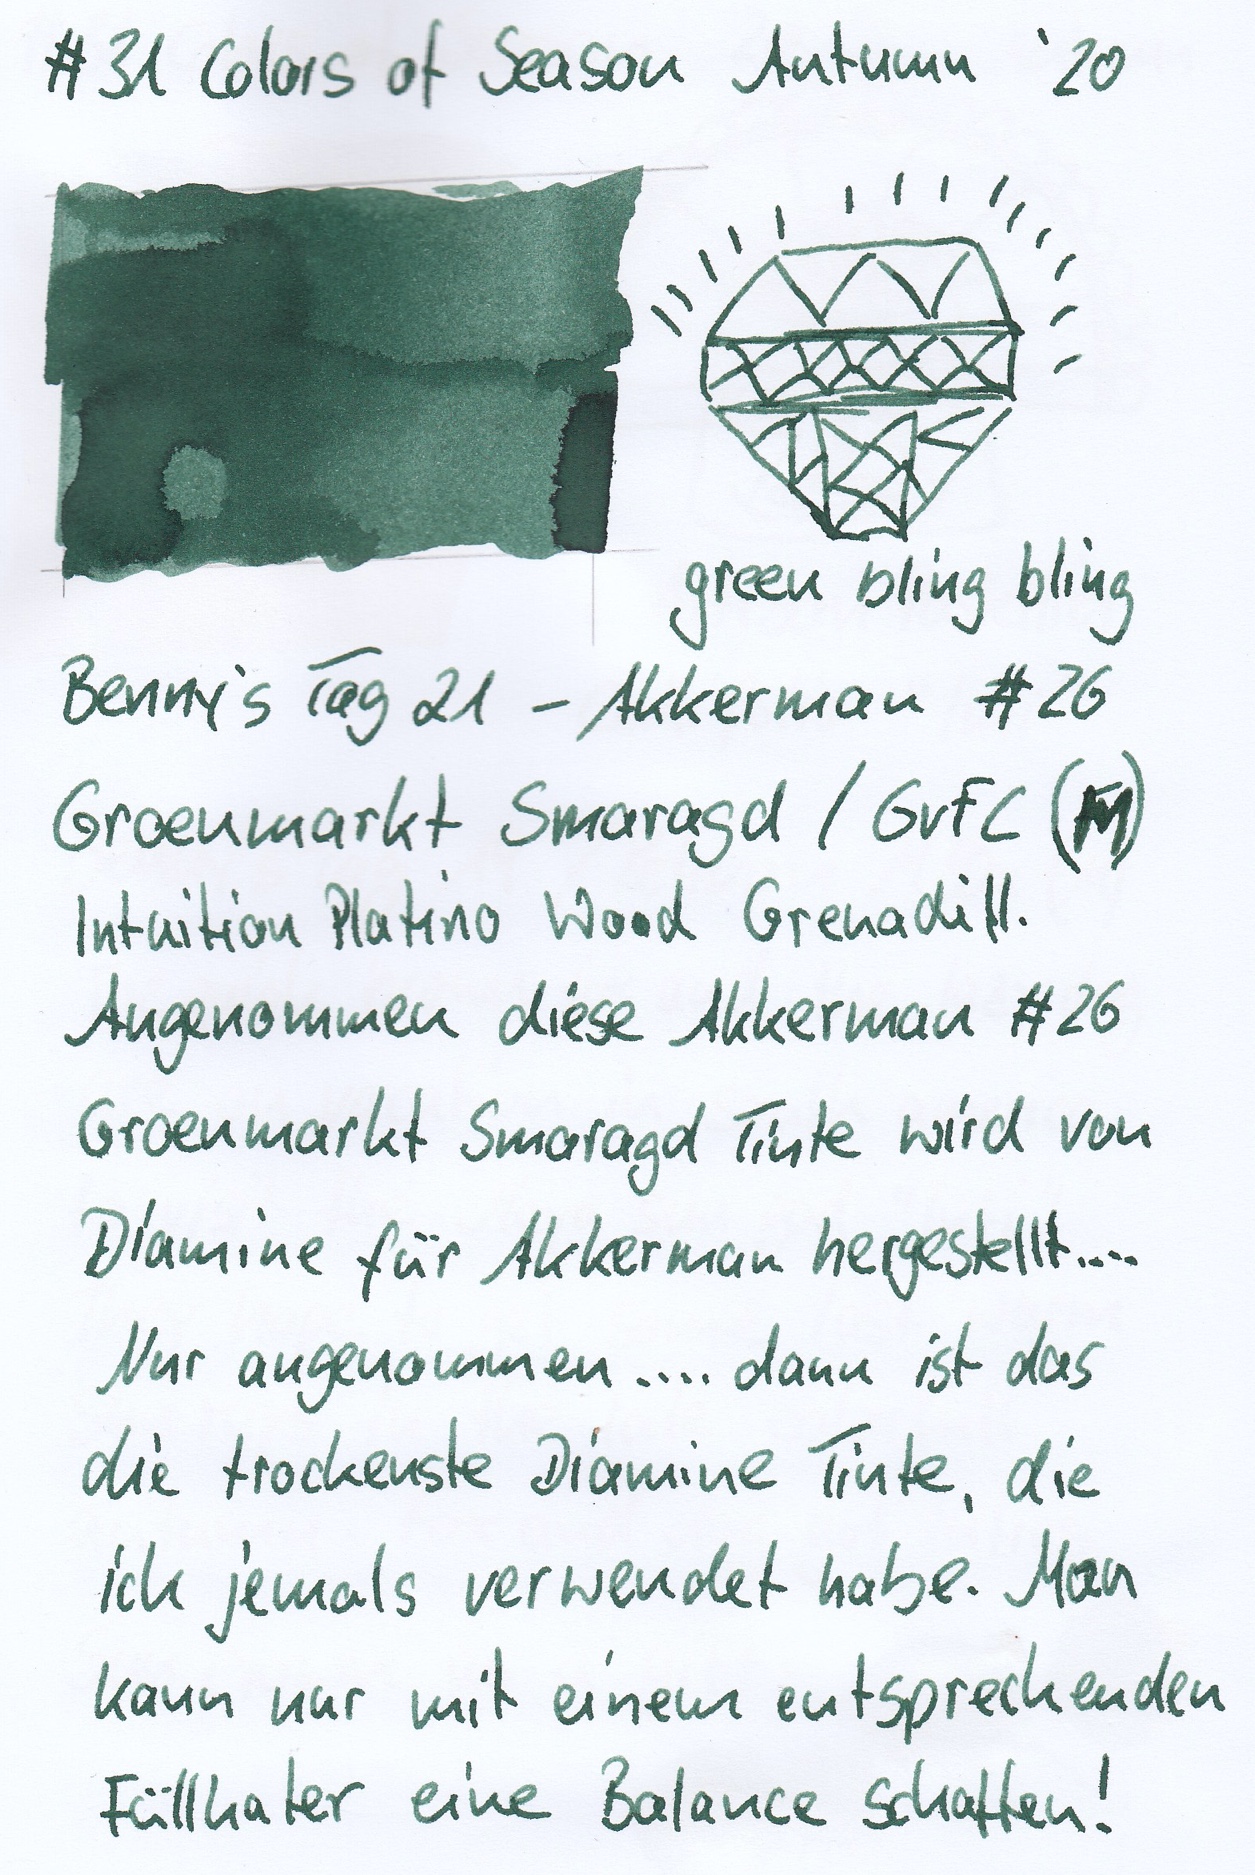 #31 Colors of Season Autumn '20
green bling bling
Benny's Tag 21 – Akkerman #26
Groenmarkt Smaragd / GvFC (M)
Intuition Platino Wood Grenadill.
Angenommen diese Akkerman #26
Groenmarkt Smaragd Tinte wird von
Diamine für Akkerman hergestellt....
Nur angenommen.... dann ist das
die trockenste Diamine Tinte, die
ich jemals verwendet habe. Man
kann nur mit einem entsprechenden
Füllhater eine Balance schaffen!